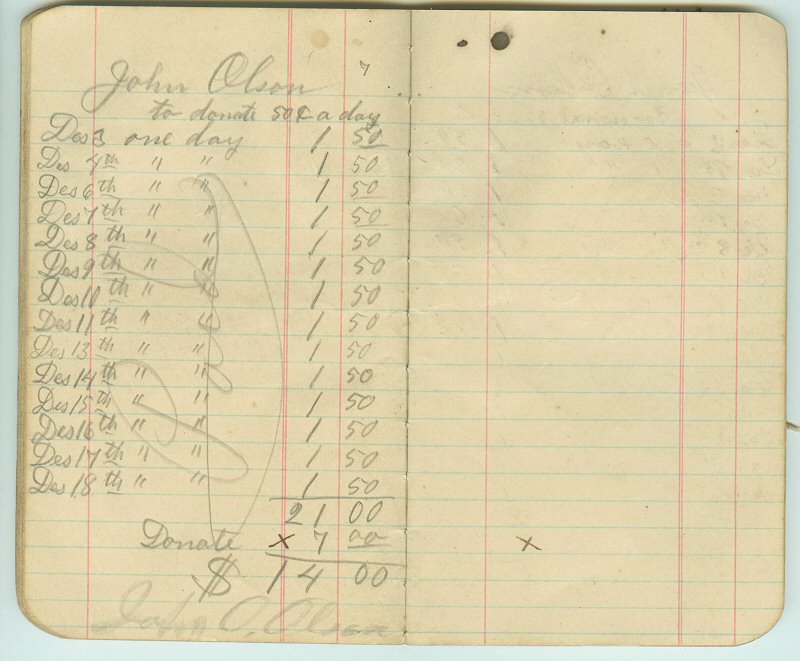 7
John Olson
to donate 50¢ a day
Des 3 one day 1 50
Des 4th " " 1 50
Des 6th " " 1 50
Des 7th " " 1 50
Des 8th " " 1 50
Des 9th " " 1 50
Des 10th " " 1 50
Des 11th " " 1 50
Des 13th " " 1 50
Des 14th " " 1 50
Des 15th " " 1 50
Des 16th " " 1 50
Des 17th " " 1 50
Des 18th " " 1 50
21 00
Donate x 7 00 x
$ 14 00
John O. Olson